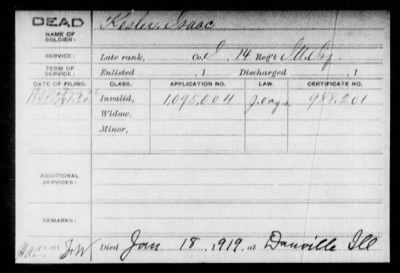 DEAD
NAME OF SOLDIER:
Kesler Isaac
SERVICE:
Late rank, Co. 14 Reg't
TERM OF SERVICE:
Enlisted , 1 Discharged , 1
DATE OF FILING. CLASS. APPLICATION NO. LAW. CERTIFICATE NO.
Invalid, 1,095,004 988,201
Widow,
Minor,
ADDITIONAL SERVICES:
REMARKS:
Died Jan 18, 1919, at Danville Ill